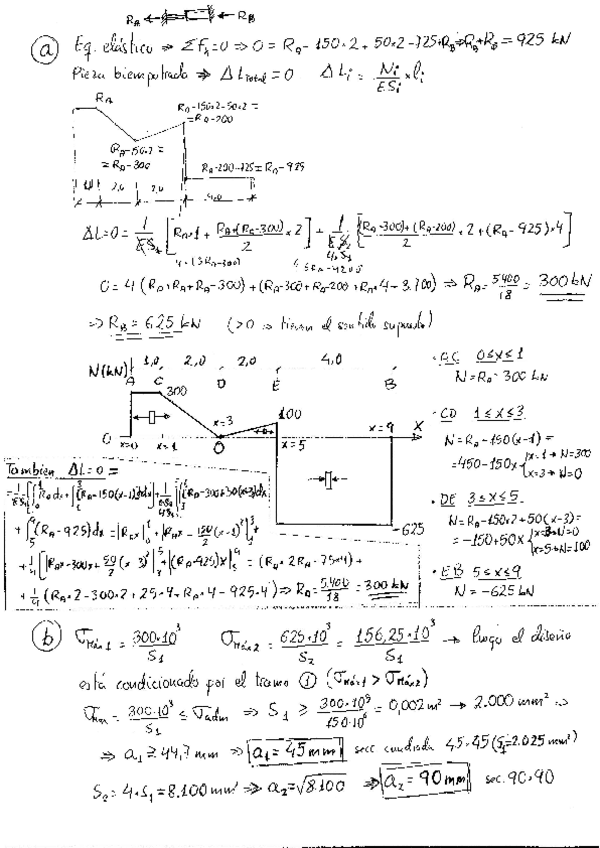 RA RB
a Eq. elástico ⇒ ΣFx=0 ⇒ 0 = RA - 150·2 + 50·2 - 725 + RB ⇒ RA+RB = 925 kN
Pieza biempotrada ⇒ ΔLtotal = 0 ΔLi = Ni/ESi × li
RA
RA-150·2-50·2 =
= RA-200
RA-150·2 =
= RA-300
RA-200-725 = RA-925
1,0 2,0 2,0 4,0
ΔL=0 = 1/ES1 [RA·1 + RA+(RA-300)/2 × 2] + 1/ES2 [(RA-300)+(RA-200)/2 × 2 + (RA-925)×4]
4·S1
0 = 4 (RA+RA+RA-300) + (RA-300+RA-200+RA·4-3.700) ⇒ RA = 5.400/18 = 300 kN
⇒ RB = 625 kN (>0 ⇒ tienen el sentido supuesto)
N(kN) 1,0 2,0 2,0 4,0
A C D E B
300
100
x=3
x=9 X
0 x=0 x=1 O x=5
-625
· AC 0≤x≤1
N = RA = 300 kN
· CD 1≤x≤3
N = RA-150(x-1) =
= 450-150x x=1 → N=300
x=3 → N=0
· DE 3≤x≤5
N = RA-150·2+50(x-3) =
= -150+50x x=3 → N=0
x=5 → N=100
· EB 5≤x≤9
N = -625 kN
Tambien ΔL=0 =
= 1/ES1 [∫RA dx + ∫(RA-150(x-1))dx] + 1/E4S1 [∫(RA-300+50(x-3))dx
+ ∫(RA-925)dx = |RAx| + |RAx - 150/2 (x-1)²| +
+ 1/4 [|RAx-300x+50/2 (x-3)²| + |(RA-925)x|] = (RA+2RA-75·4) +
+ 1/4 (RA·2-300·2+25·4+RA·4-925·4) ⇒ RA = 5.400/18 = 300 kN
b σmáx1 = 300·10³/S1 σmáx2 = 625·10³/S2 = 156,25·10³/S1 → luego el diseño
está condicionado por el tramo 1 (σmáx1 > σmáx2)
σmáx = 300·10³/S1 ≤ σadm ⇒ S1 ≥ 300·10³/150·10⁶ = 0,002 m² → 2.000 mm² ⇒
⇒ a1 ≥ 44,7 mm ⇒ a1 = 45 mm secc cuadrada 45·45 (S1=2.025 mm²)
S2 = 4·S1 = 8.100 mm² ⇒ a2 = √8.100 ⇒ a2 = 90 mm sec. 90·90